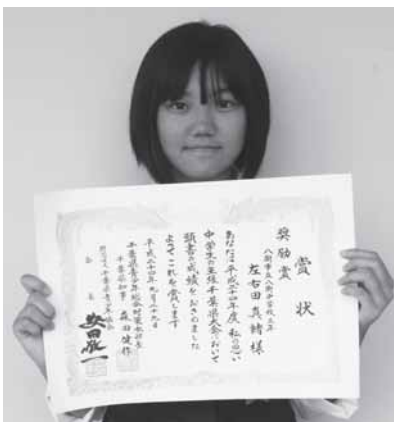 賞状
奨励賞
八街市立八街中学校三年
左右田真緒様
あなたは平成二十四年度私の思い
中学生の主張千葉県大会において
頭書の成績をおさめました
よってこれを賞します
平成二十四年九月二十九日
千葉県青少年総合対策本部長
千葉県知事 森田健作
会長 安田敬一